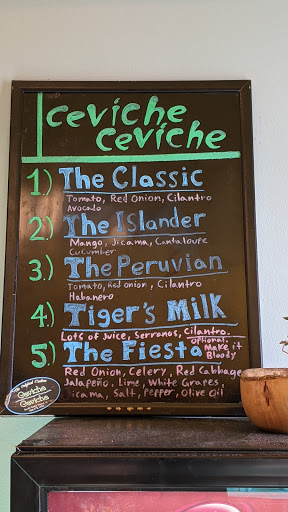 ceviche
ceviche
1.) The Classic
Tomato, Red Onion, Cilantro
Avocado
2.) The Islander
Mango, Jicama, Cantaloupe
Cucumber
3.) The Peruvian
Tomato, Red onion, Cilantro
Habanero
4.) Tiger's Milk
Lots of Juice, Serranos, Cilantro
optional,
Make it
Bloody
5.) The Fiesta
Red Onion, Celery, Red Cabbage
Jalapeño, Lime, White Grapes,
Jicama, Salt, Pepper, Olive Oil
Ceviche
Ceviche